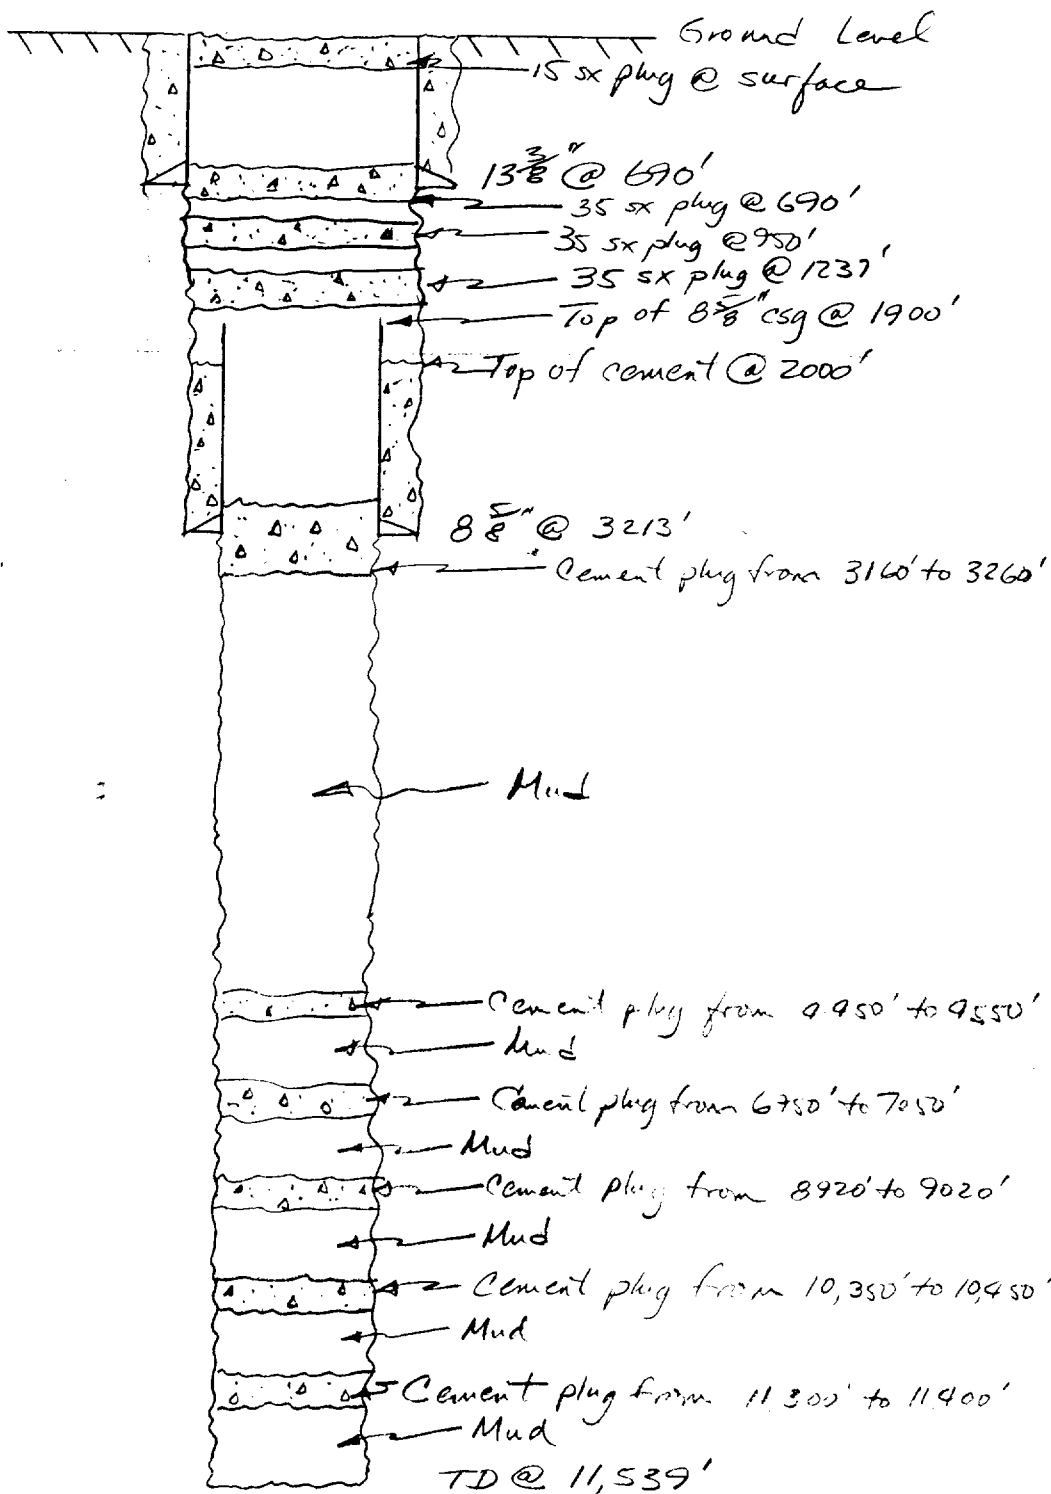 Ground Level
15 sx plug @ surface
13 3/8" @ 690'
35 sx plug @ 690'
35 sx plug @ 950'
35 sx plug @ 1237'
Top of 8 5/8" csg @ 1900'
Top of cement @ 2000'
8 5/8" @ 3213'
Cement plug from 3160' to 3260'
Mud
Cement plug from 4450' to 4550'
Mud
Cement plug from 6750' to 7050'
Mud
Cement plug from 8920' to 9020'
Mud
Cement plug from 10,350' to 10,450'
Mud
Cement plug from 11,300' to 11,400'
Mud
TD @ 11,539'